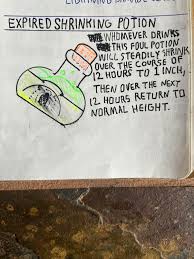 EXPIRED SHRINKING POTION
WHOMEVER DRINKS
THIS FOUL POTION
WILL STEADILY SHRINK
OVER THE COURSE OF
12 HOURS TO 1 INCH,
THEN OVER THE NEXT
12 HOURS RETURN TO
NORMAL HEIGHT.